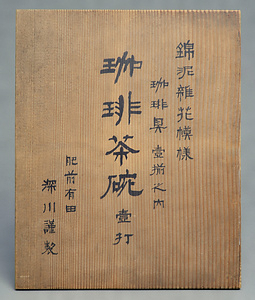 錦泥雑花模様
珈琲具壹揃之内
珈琲茶碗 壹打
肥前有田
深川謹製